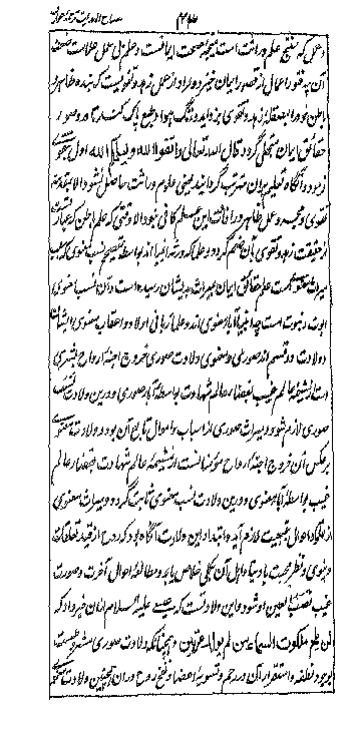 مصباح الهدایت ترجمه عوارف
و عمل که منتج علم وراثت است نتیجهٔ صحت ایمانست و علم بی عمل علامت ضعف
آن چه فتور اعمال از قصور ایمان خیزد و مراد از عمل زهد و تقوی ست که بنده ظاهر و
باطن خود را بمصقلهٔ زهد و تقوی بزداید و زنگ هوا و طبع پاک کند تا در وی صور
حقائق ایمان متجلی گردد قال الله تعالی واتقوا الله ویعلمکم الله اول بتقوی
فرمود و آنگاه تعلیم بران مترتب گردانید یعنی علوم وراثت حاصل نشود الا بمقدمه
تقوی و مجرد عمل ظاهر در افادت این علم کافی نبود الا وقتی که علم باطن که عبارتست
از حقیقت زهد و تقوی بآن منضم گردد و علما که ورثه انبیا اند بواسطه تصحیح نسب معنوی که سبب
میراث معنویست علم حقائق ایمان بمیراث بدیشان رسیده است و آن نسب معنوی
ابوت و نبوت است چه انبیا آباء معنوی اند و علماء ربانی اولاد و اعقاب معنوی ایشان
و ولادت دو قسم اند صوری و معنوی ولادت صوری خروج اجنهٔ ارواح بشری
است از مشیمه عالم غیب بفضاء عالم شهادت بواسطه آباء صوری و درین ولادت نسب
صوری لازم شود و میراث صوری از اسباب و اموال تابع آن بود و ولادت معنوی
برعکس آن خروج اجنهٔ ارواح مؤمنانست از مشیمهٔ عالم شهادت بفضاء عالم
غیب بواسطهٔ آباء معنوی و درین ولادت نسب معنوی ثابت گردد و میراث معنوی
از علوم و احوال بتبعیت لازم آید و ابتداء این ولادت آنگاه بود که روح از قید تعلقات
دنیوی و نظر محبت بدنیا و اهل آن بکلی خلاص یابد و مطالعهٔ احوال آخرت و صورت
غیب نصب العین او شود و این ولادتست که عیسی علیه السلام ازان خبر داد که
لن یلج ملکوت السماء من لم یولد مرتین و همچنانکه ولادت صوری مشروطست
بوجود نطفه و استقرار آن در رحم و تسویهٔ اعضا و نفخ روح دران همچنین ولادت معنوی